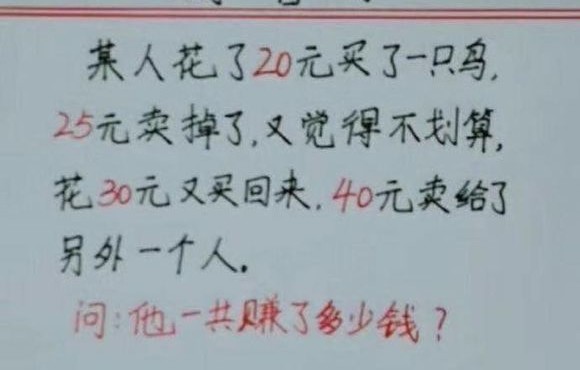 某人花了20元买了一只鸟,
25元卖掉了,又觉得不划算,
花30元又买回来,40元卖给了
另外一个人。
问:他一共赚了多少钱?